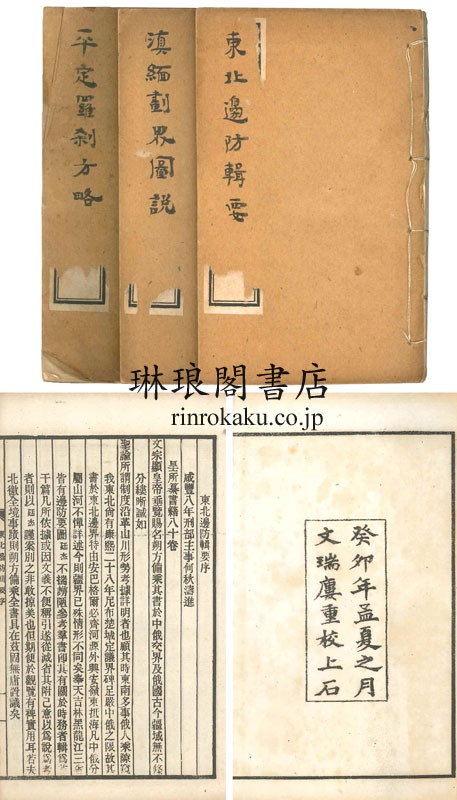 東北邊防輯要
滇緬劃界圖説
平定羅刹方略
琳琅閣書店
rinrokaku.co.jp
癸卯年孟夏之月
文瑞廔重校上石
東北邊防輯要序
咸豐八年刑部主事何秋濤進
呈所纂書籍八十卷
文宗顯皇帝垂覽賜名朔方備乘其書於中俄交界及俄國古今疆域無不條
分縷晰誠如
聖諭所謂制度沿革山川形勢考據詳明者也顧其時東南多事俄人乘隙
我東北尙有康熙二十八年尼布楚城定議界碑足嚴中俄之限故其
書於東北邊界特由安巴格爾必齊河源外興安嶺東抵海凡中俄分
屬山河不憚詳述今則疆界已殊情形不同矣奉天吉林黑龍江三
皆有邊防要圖廷杰不揣譾陋參考羣書其有關於時務者輯爲
干篇凡所依據或因文義不便稱引遂從減省其附己意以爲說
者則以廷杰謹案別之非敢掠美也但期便於觀覽有裨實用耳若夫
北徼全境事蹟則朔方備乘全書具在茲固無庸議矣